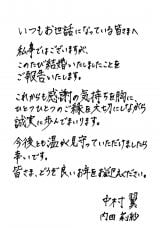 いつもお世話になっている皆さまへ
私事ではございますが、
このたび結婚いたしましたことを
ご報告いたします。
これからも感謝の気持ちを胸に、
ひとつひとつのご縁を大切にしながら
誠実に歩んでまいります。
今後とも温かく見守っていただけましたら
幸いです。
皆さま、どうぞ良いお年をお迎えください。
中村 翼
内田 莉紗